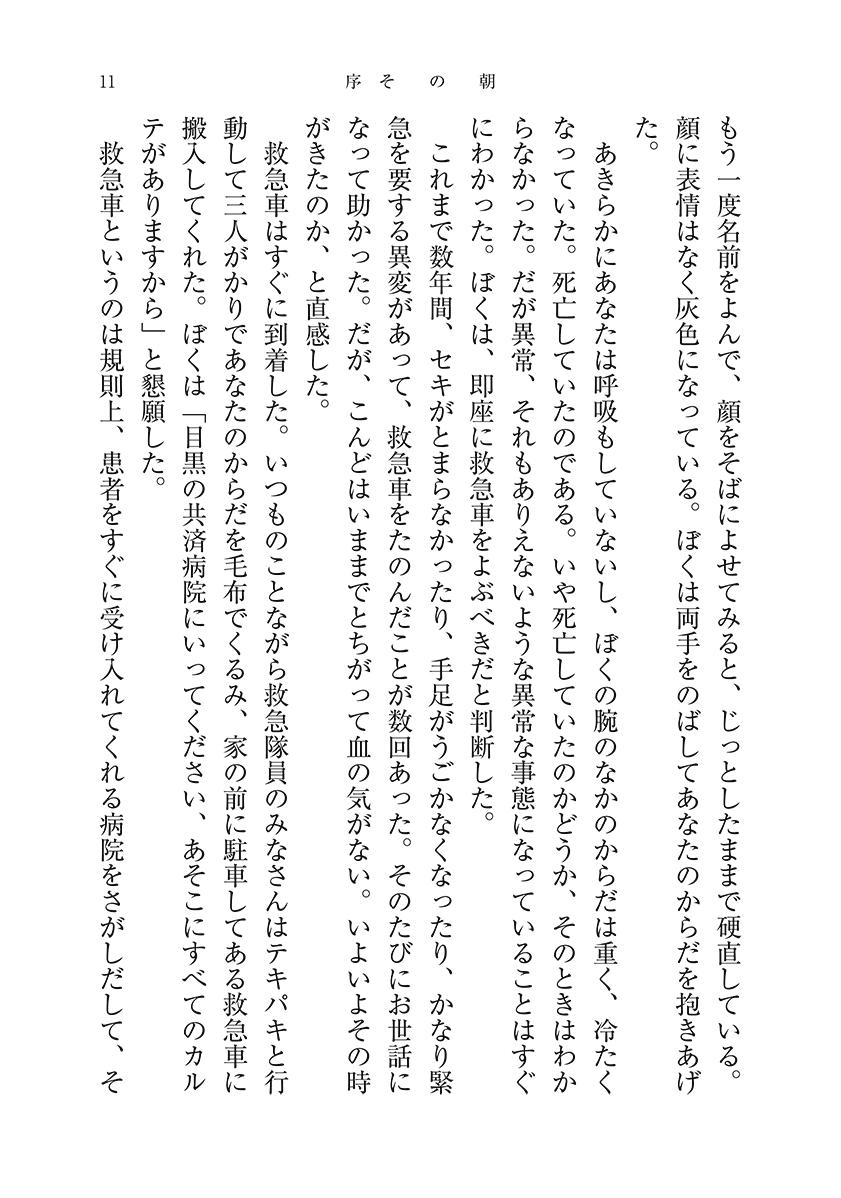 11
序 その朝
もう一度名前をよんで、顔をそばによせてみると、じっとしたままで硬直している。
顔に表情はなく灰色になっている。ぼくは両手をのばしてあなたのからだを抱きあげ
た。
あきらかにあなたは呼吸もしていないし、ぼくの腕のなかのからだは重く、冷たく
なっていた。死亡していたのである。いや死亡していたのかどうか、そのときはわか
らなかった。だが異常、それもありえないような異常な事態になっていることはすぐ
にわかった。ぼくは、即座に救急車をよぶべきだと判断した。
これまで数年間、セキがとまらなかったり、手足がうごかなくなったり、かなり緊
急を要する異変があって、救急車をたのんだことが数回あった。そのたびにお世話に
なって助かった。だが、こんどはいままでとちがって血の気がない。いよいよその時
がきたのか、と直感した。
救急車はすぐに到着した。いつものことながら救急隊員のみなさんはテキパキと行
動して三人がかりであなたのからだを毛布でくるみ、家の前に駐車してある救急車に
搬入してくれた。ぼくは「目黒の共済病院にいってください、あそこにすべてのカル
テがありますから」と懇願した。
救急車というのは規則上、患者をすぐに受け入れてくれる病院をさがしだして、そ